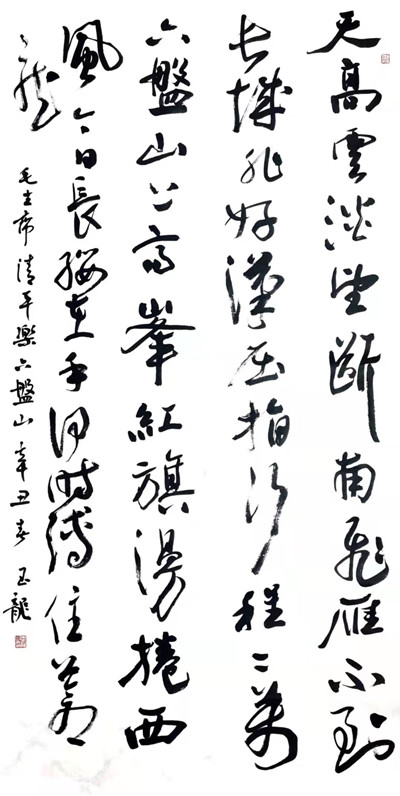 天高雲淡望斷南飛雁不到
長城非好漢屈指行程二萬
六盤山上高峯紅旗漫捲西
風今日長纓在手何時縛住蒼
龍
毛主席清平樂六盤山 辛丑春 玉龍